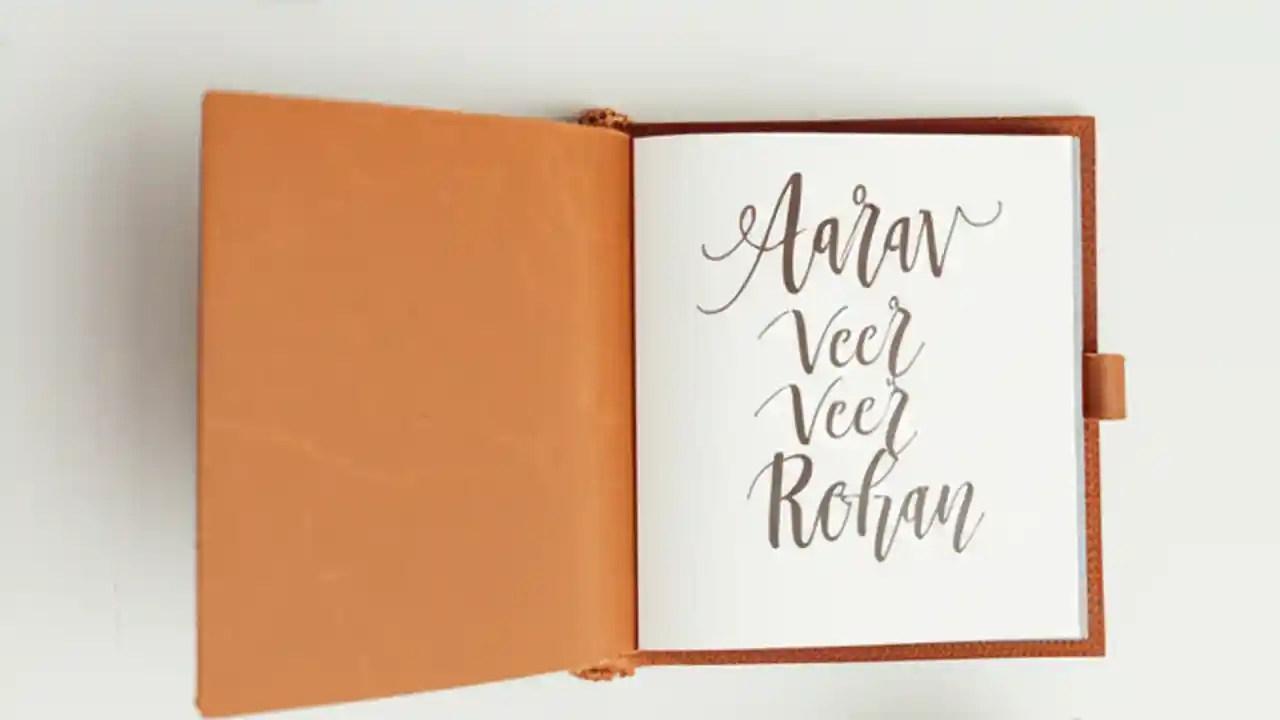 Aarav
Veer
Veer
Rohan